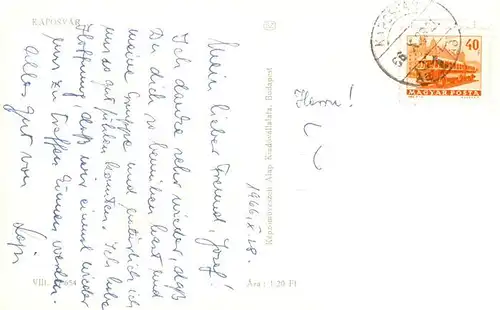 KAPOSVÁR
Mein lieber Freund, Józsi!
Ich danke sehr wieder, daß
Du dich so bemühen hast und
meine Gruppe und natürlich ich
uns so gut fühlen konnten. Ich habe
Hoffnung, daß wir einmal wieder
uns zu treffen können werden.
Alles gut von
VIII. 654
Ára: 1.20 Ft
Képzőművészeti Alap Kiadóvállalata, Budapest
1966. X. 28.
Herrn!
KAPOSVÁR
40
MAGYAR POSTA